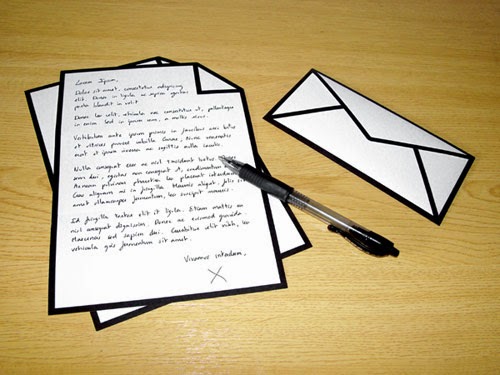 Lorem Ipsum,
Dolor sit amet, consectetur adipiscing
elit. Donec in ligula ac sapien egestas
porta blandit in velit.
Donec leo velit, vehicula nec consectetur et, pellentesque
in enim. Sed in ipsum sem, a mollis
Vestibulum ante ipsum primis in faucibus orci luctus
et ultrices posuere cubilia Curae; Nunc venenatis
erat et ipsum
Nulla consequat sem ac nisl tincidunt
orci dui, egestas non consequat et, condimentum
Aenean pulvinar pharetra leo placerat interdum.
Cras aliquam mi in fringilla. Mauris aliquet, felis
amet ullamcorper fermentum, leo suscipit
Id fringilla tortor elit et ligula. Etiam mattis
nisl consequat dignissim. Donec ac euismod gravida.
Maecenas sed sapien dui. Curabitur velit nibh,
vehicula quis fermentum sit amet.
Vivamus interdum,
X